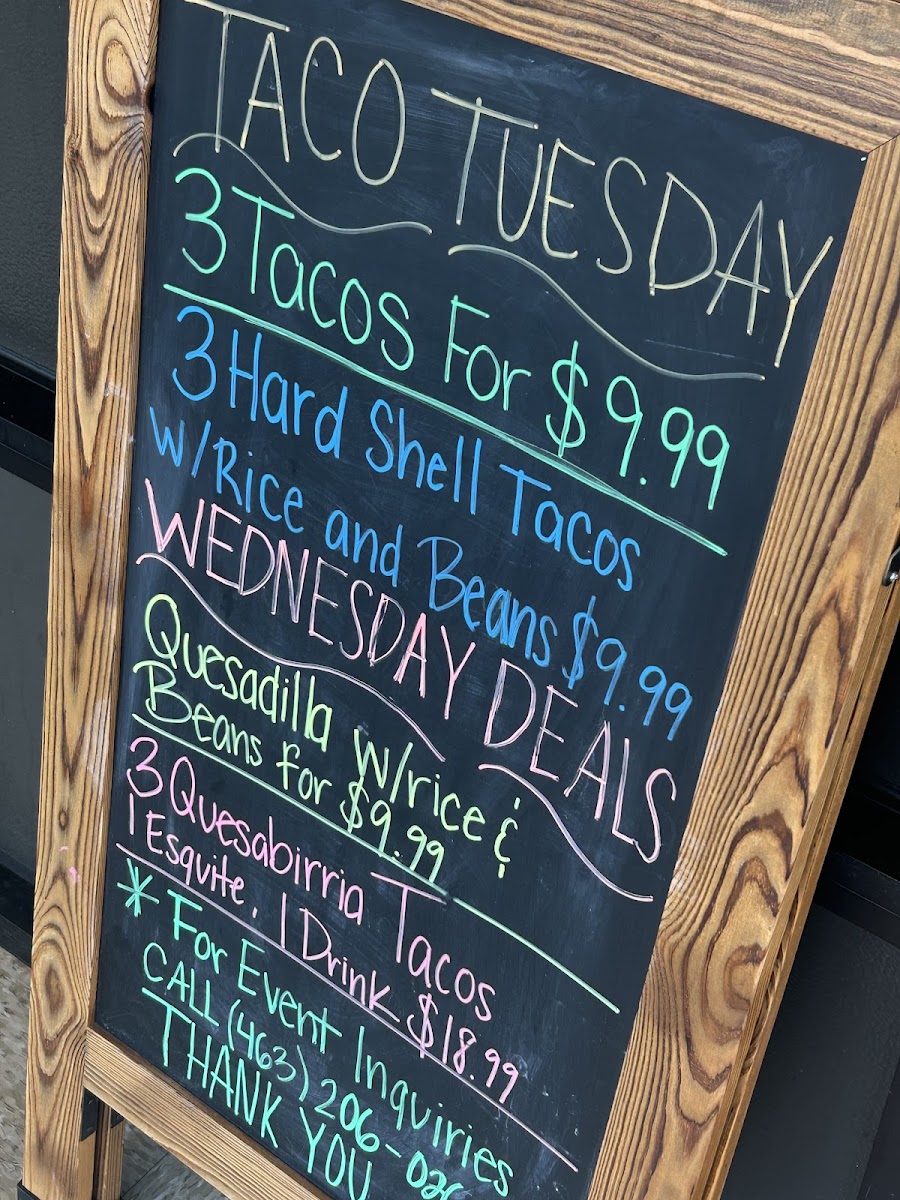 TACO TUESDAY
3 Tacos For $9.99
3 Hard Shell Tacos
w/Rice and Beans $9.99
WEDNESDAY DEALS
Quesadilla w/rice &
Beans for $9.99
3 Quesabirria Tacos
1 Esquite, 1 Drink $18.99
* For Event Inquiries
CALL (463) 206-
THANK YOU